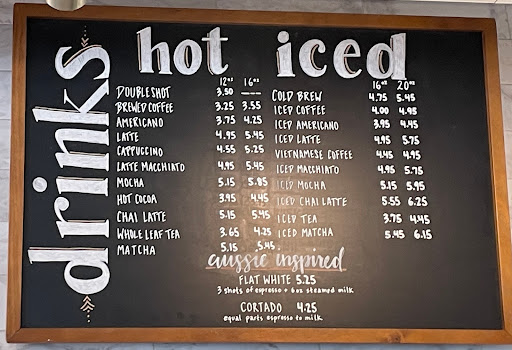 drinks
hot iced
12oz 16oz
DOUBLESHOT 3.50 ——
BREWED COFFEE 3.25 3.55
AMERICANO 3.75 4.25
LATTE 4.95 5.45
CAPPUCCINO 4.55 5.25
LATTE MACCHIATO 4.95 5.45
MOCHA 5.15 5.85
HOT COCOA 3.95 4.45
CHAI LATTE 5.15 5.45
WHOLE LEAF TEA 3.65 4.25
MATCHA 5.15 5.45
16oz 20oz
COLD BREW 4.75 5.45
ICED COFFEE 4.00 4.95
ICED AMERICANO 3.95 4.45
ICED LATTE 4.95 5.75
VIETNAMESE COFFEE 4.45 4.95
ICED MACCHIATO 4.95 5.75
ICED MOCHA 5.15 5.95
ICED CHAI LATTE 5.55 6.25
ICED TEA 3.75 4.45
ICED MATCHA 5.45 6.15
aussie inspired
FLAT WHITE 5.25
3 shots of espresso + 6oz steamed milk
CORTADO 4.25
equal parts espresso to milk